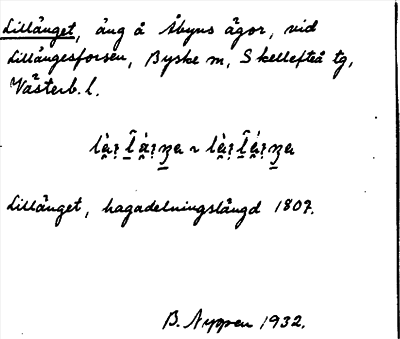 Lillänget, äng å Åbyns ägor, vid
Lillängesforsen, Byske sn, Skellefteå tg,
Västerb. l.
Lillänget, hagadelningslängd 1807.
B. Nygren 1932.